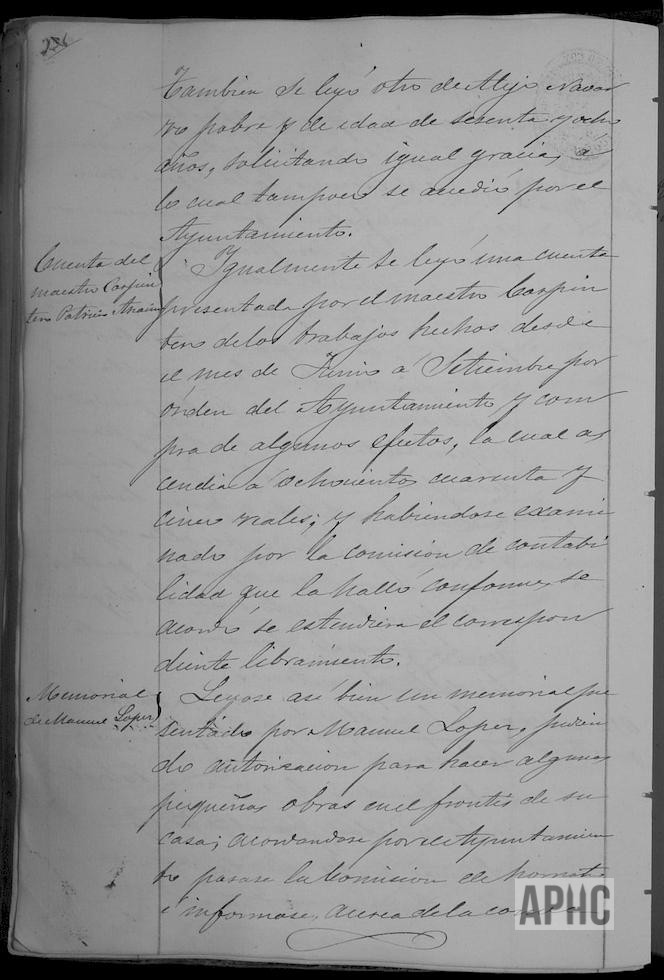 Tambien se leyó otro de Alejo Navar
ro pobre y de edad de sesenta y ocho
años, solicitando igual gracia, a
lo cual tampoco se accedió por el
Ayuntamiento.
Cuenta del
maestro Carpin
tero Patricio
Ygualmente se leyó una cuenta
presentada por el maestro Carpin
tero de los trabajos hechos desde
el mes de Junio a Setiembre por
órden del Ayuntamiento y com
pra de algunos efectos, la cual as
cendia a ochocientos cuarenta y
cinco reales; y habiendose exami
nado por la comision de contabi
lidad que la halló conforme, se
acordó se estendiera el correspon
diente libramiento.
Memorial
de Manuel Lopez
Leyose asi bien un memorial pre
sentado por Manuel Lopez, pidien
do autorizacion para hacer algunas
pequeñas obras en el frontis de su
casa; acordandose por el Ayuntamien
to pasase la Comision de hornato
é informase, acerca de la
APHC